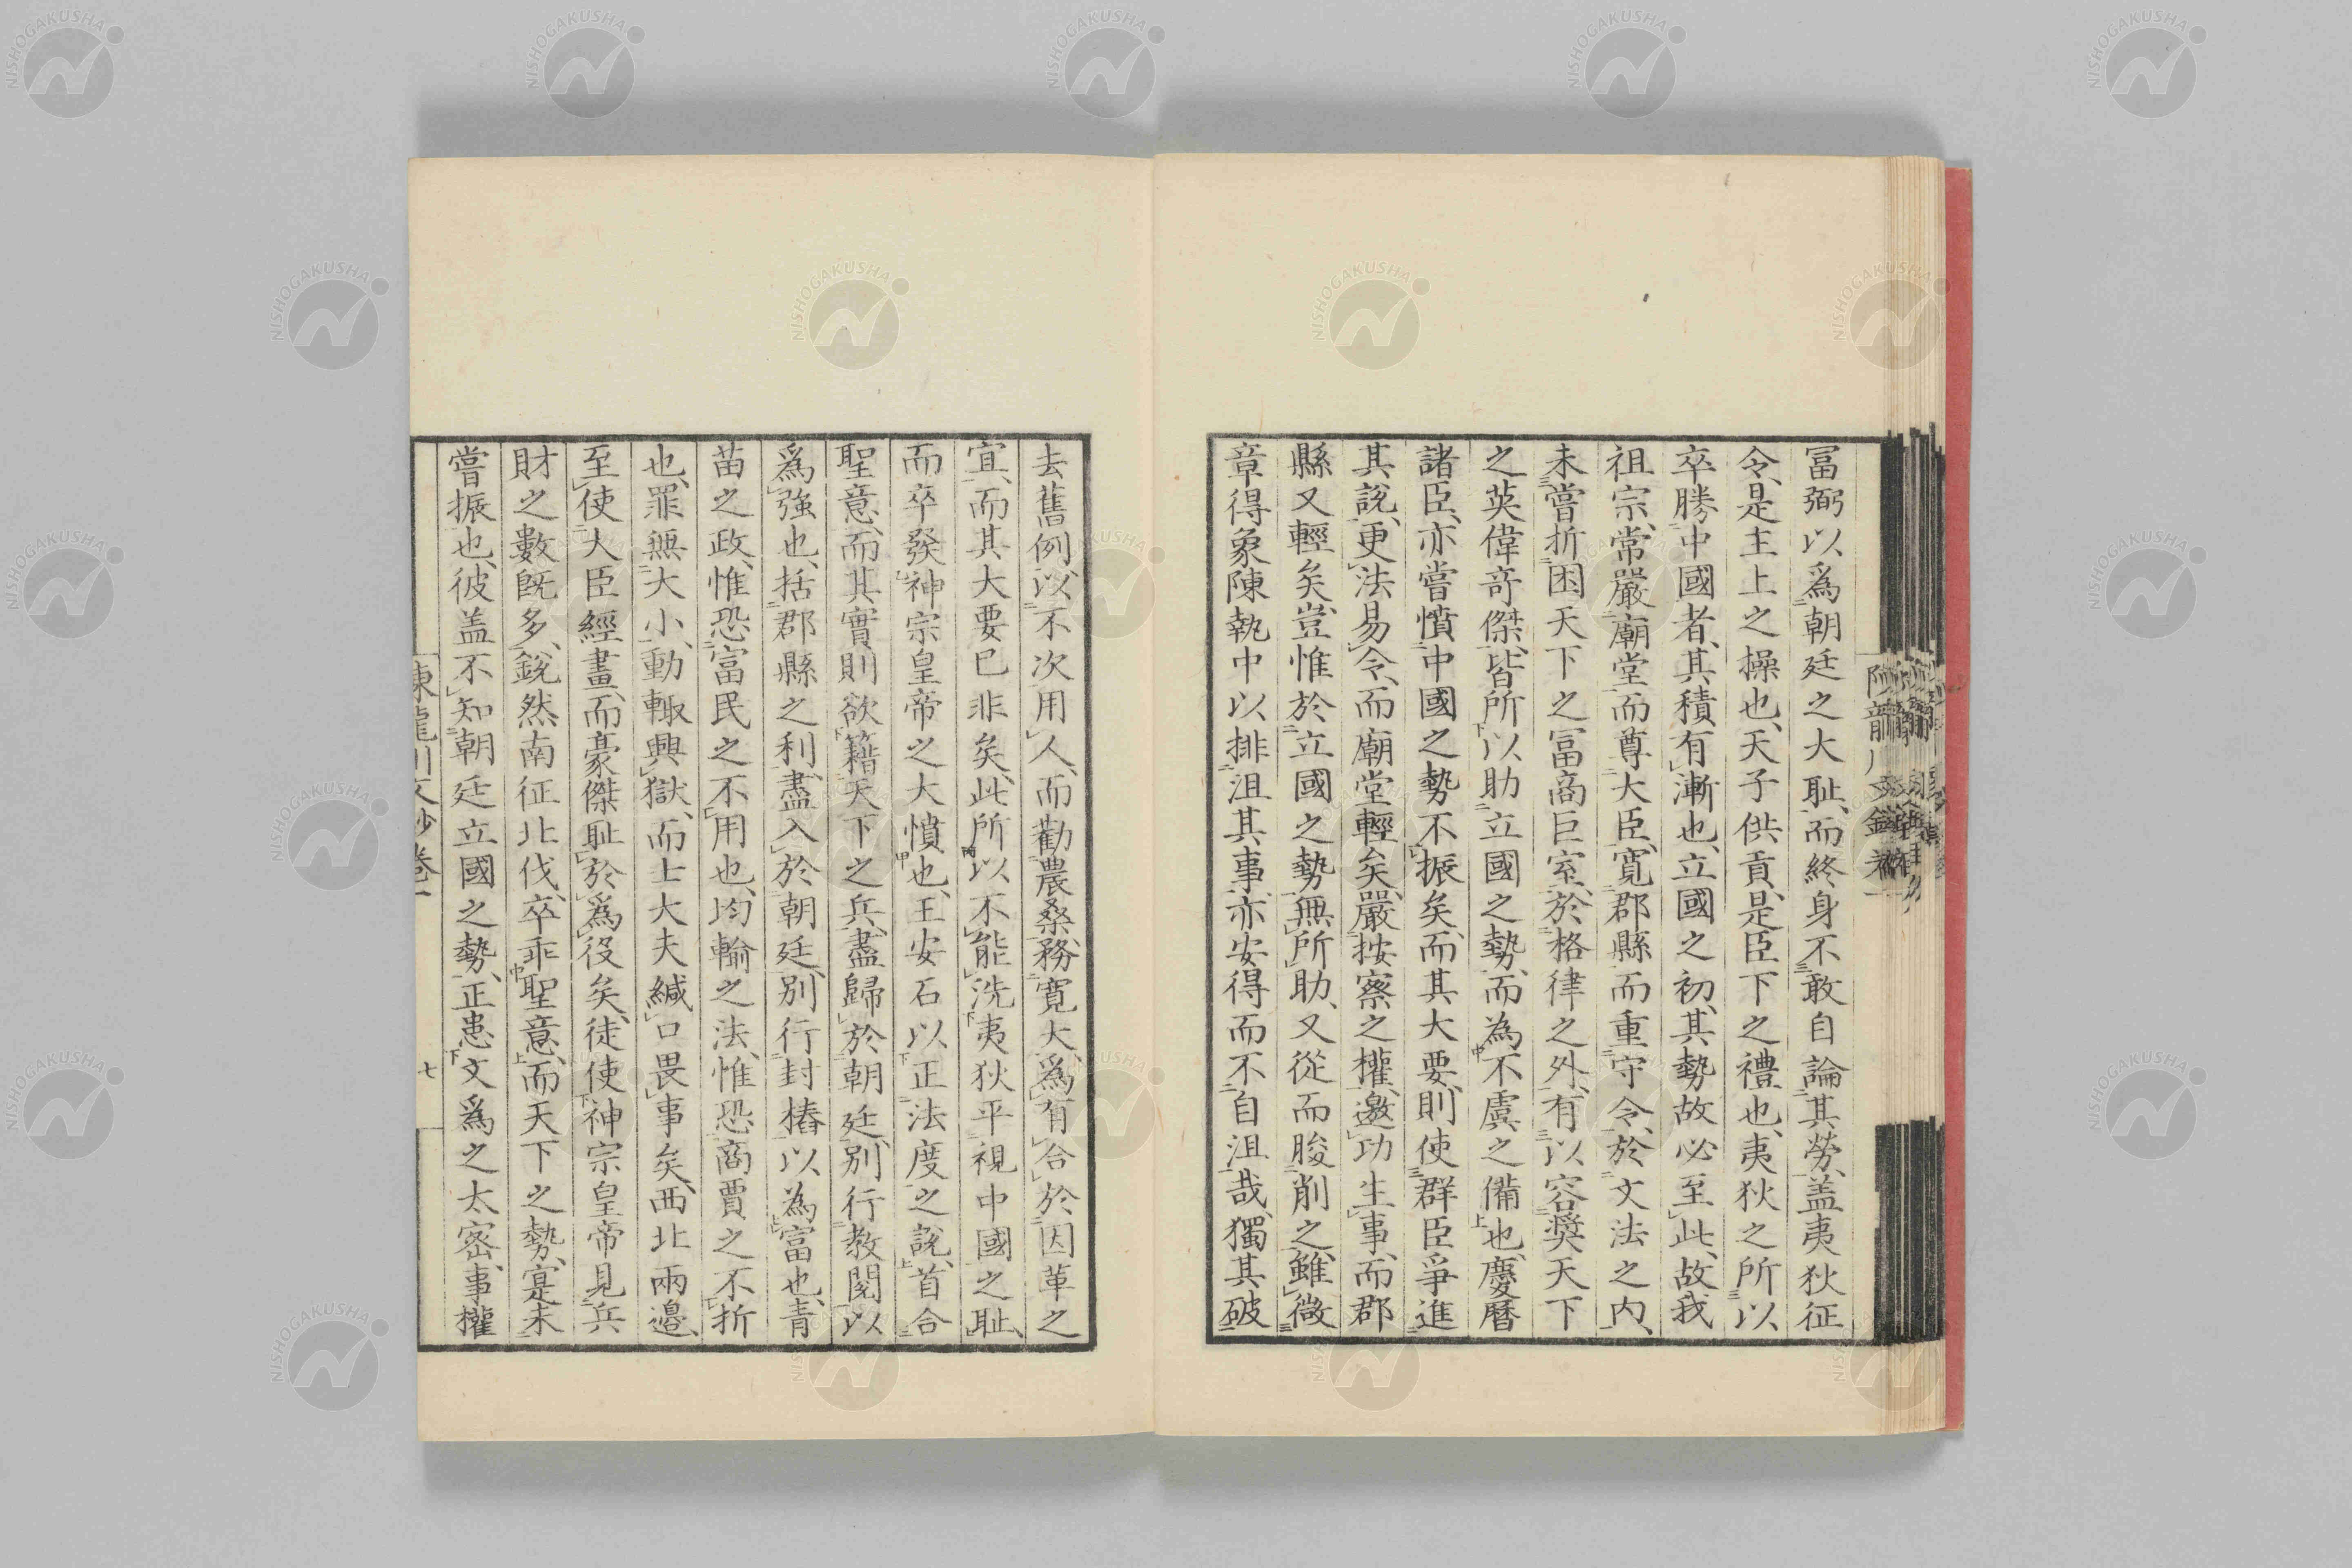 冨弼以爲朝廷之大耻、而終身不敢自論其勞、盖夷狄征
令、是主上之操也、天子供貢、是臣下之禮也、夷狄之所以
卒勝中國者、其積有漸也、立國之初、其勢故必至此、故我
祖宗、常嚴廟堂而尊大臣、寛郡縣而重守令、於文法之内、
未嘗折困天下之冨商巨室、於格律之外、有以容奨天下
之英偉竒傑、皆所以助立國之勢、而為不虞之備也、慶曆
諸臣、亦嘗憤中國之勢不振矣、而其大要、則使群臣爭進
其說、更法易令、而廟堂輕矣、嚴按察之權、邀功生事、而郡
縣又輕矣、豈惟於立國之勢、無所助、又從而朘削之、雖微
章得象陳執中以排沮其事、亦安得而不自沮哉、獨其破
去舊例、以不次用人、而勸農桑、務寛大、爲有合於因革之
宜、而其大要已非矣、此所以不能洗夷狄平視中國之耻、
而卒發神宗皇帝之大憤也、王安石以正法度之說、首合
聖意、而其實則欲籍天下之兵、盡歸於朝廷、別行教閱以
爲強也、括郡縣之利、盡入於朝廷、別行封樁以為冨也、青
苗之政、惟恐富民之不用也、均輸之法、惟恐商賈之不折
也、罪無大小、動輙興獄、而士大夫緘口畏事矣、西北兩邊、
至使大臣經畫、而豪傑耻於爲役矣、徒使神宗皇帝見兵
財之數既多、銳然南征北伐、卒乖聖意、而天下之勢、寔未
嘗振也、彼盖不知朝廷立國之勢、正患文爲之太密、事權
陳龍川文鈔 卷一
七